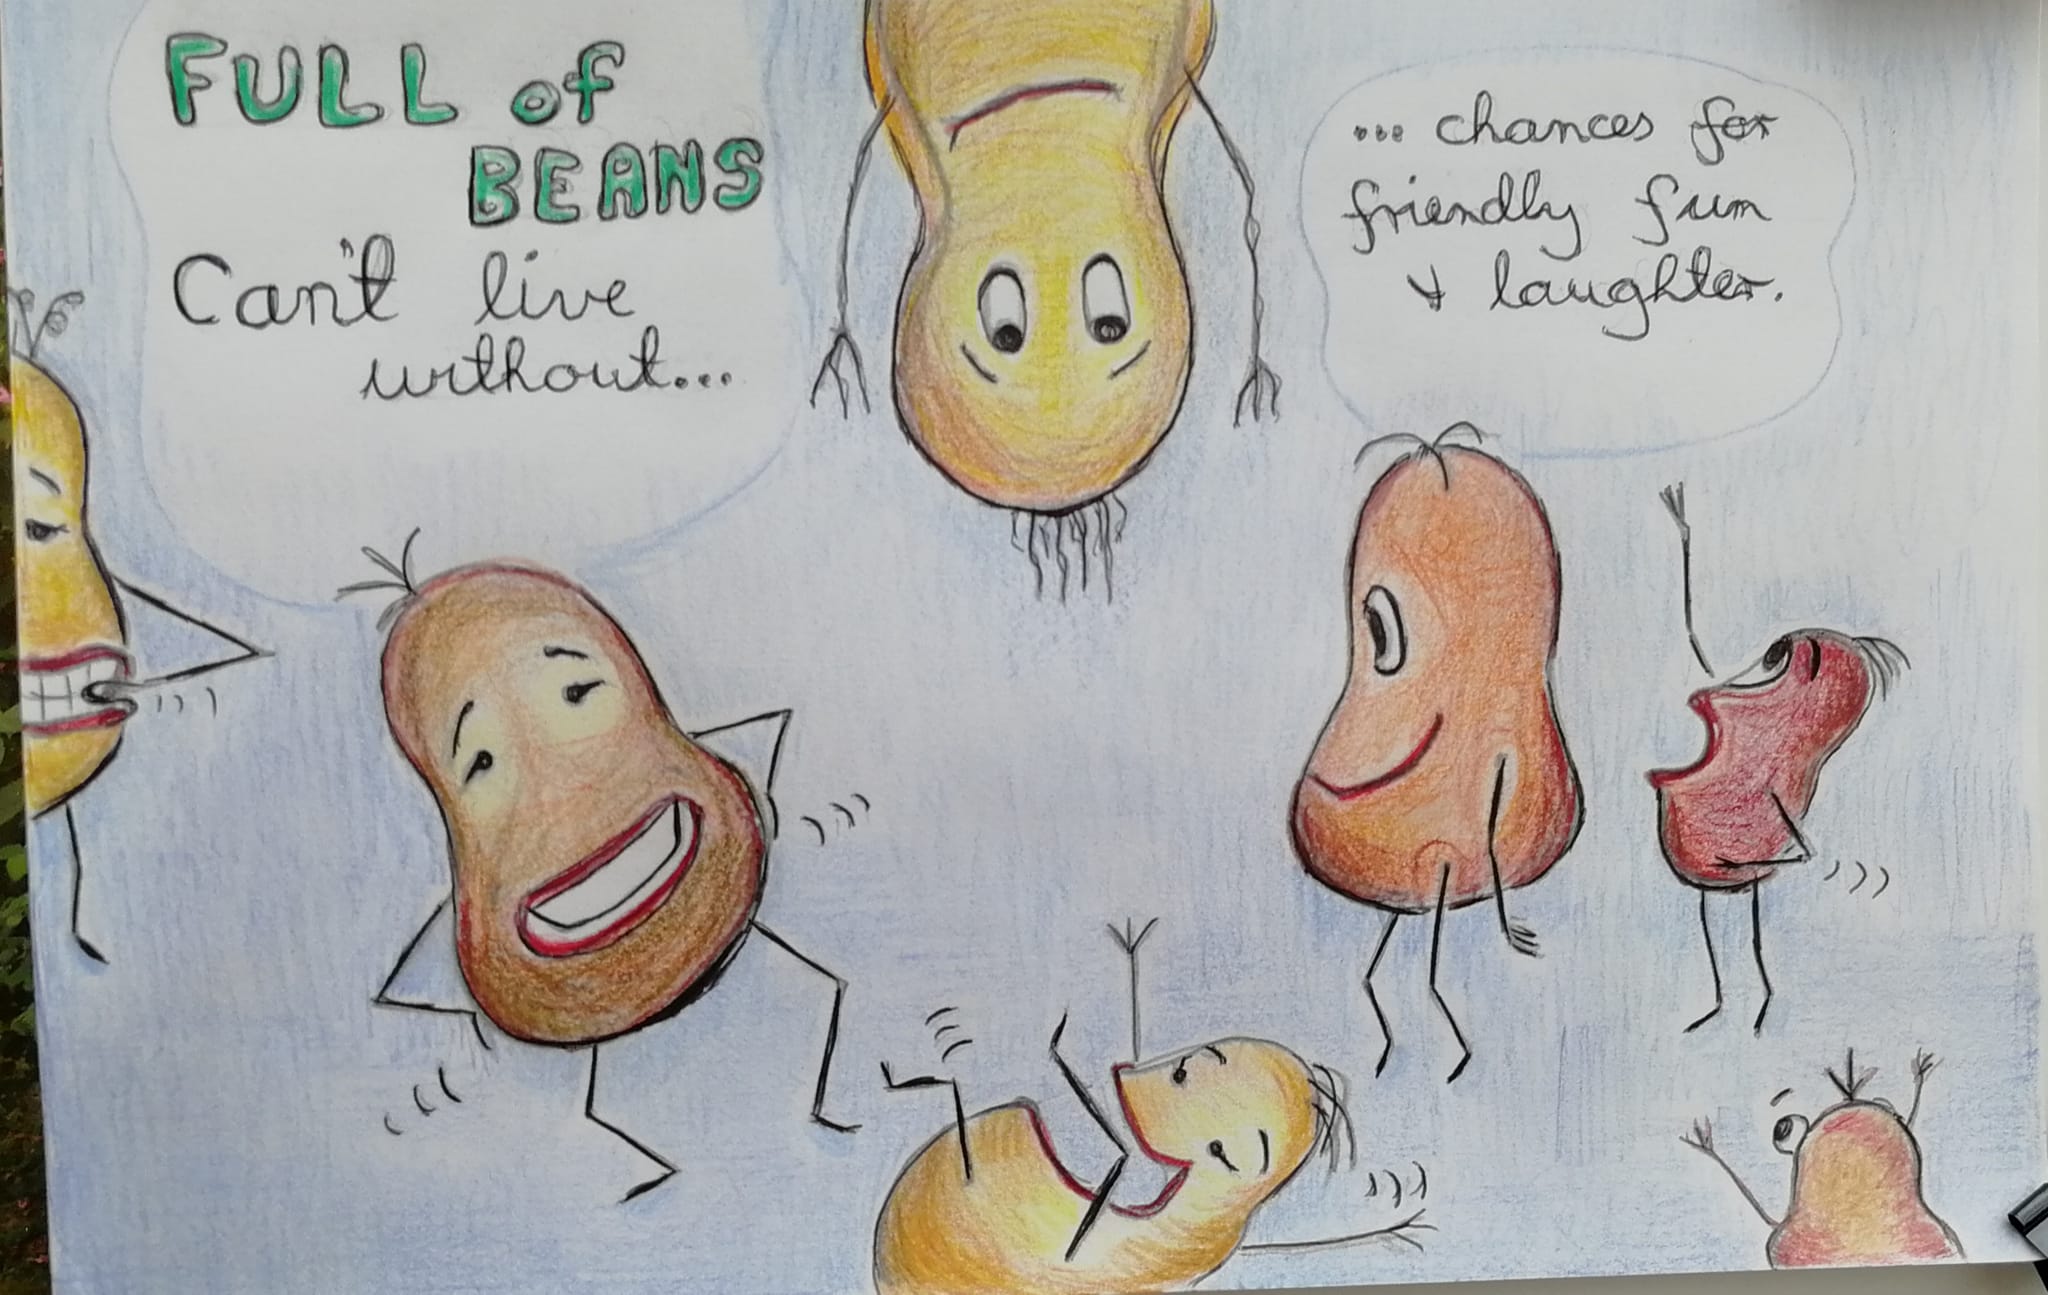 FULL of
BEANS
Can't live
without...
... chances for
friendly fun
& laughter.